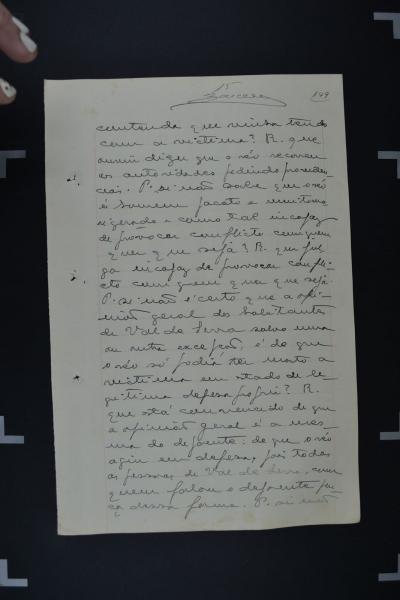 199
contenda que vinha tendo
com a victima? R. que
ouviu dizer que o réo recorreu
as autoridades pedindo providen
cias. P. si não sabe que o réo
é homem pacato e
e como tal incapaz
de provocar conflicto com quem
quer que seja? R. que jul
ga incapaz de provocar confli
cto com quem quer que seja.
P. si não é certo que a opi
nião geral dos habitantes
de Val de Serra salvo uma
ou outra excepção, é de que
o réo só podia ter morto a
victima em estado de le
gitima defesa propria? R.
que está convencido de que
a opinião geral é a mes
ma do depoente: de que o réo
agiu em defesa, pois todas
as pessoas de Val de Serra, com
quem falou o depoente pen
ça dessa forma. P. si não